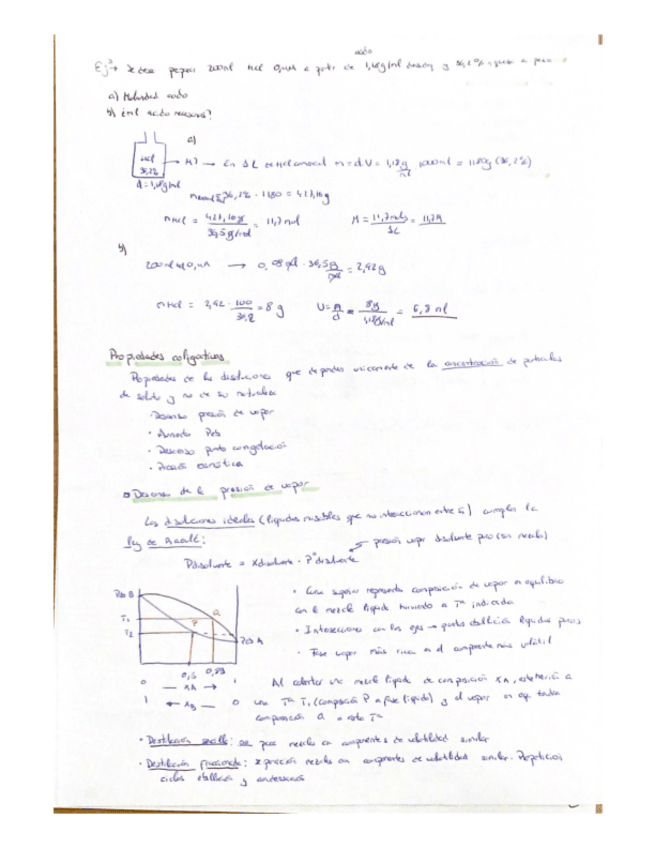 ácido
Ej: → Se desea preparar 200ml HCl 0,4M a partir de 1,18g/ml densidad y 36,2% riqueza a peso
a) Molaridad ácido
b) ¿ml ácido necesarios?
a)
HCl 36,2% → M? → En 1L de HCl comercial m = d·V = 1,18 g/ml · 1000ml = 1180g (36,2%)
d = 1,18g/ml
36,2% · 1180 = 427,16g
nHCl = 427,16g / 36,5g/mol = 11,7 mol M = 11,7 mols / 1L = 11,7M
b)
200ml 0,4M → 0,08 mol · 36,5 g/mol = 2,92g
mHCl = 2,92 · 100/36,2 = 8g V = m/d = 8g / 1,18g/ml = 6,8 ml
Propiedades coligativas
Propiedades de las disoluciones que dependen únicamente de la concentración de partículas
de soluto y no de su naturaleza
· Descenso presión de vapor
· Aumento Peb
· Descenso punto congelación
· Presión osmótica
Descenso de la presión de vapor
Las disoluciones ideales (líquidos miscibles que no interaccionan entre sí) cumplen la
ley de Raoult:
presión vapor disolvente puro (sin mezcla)
Pdisolvente = Xdisolvente · P°disolvente
Peb B
T1
T2
P
Q
Peb A
0,5 0,89
0 — XA → 1
1 ← XB — 0
· Curva superior representa composición de vapor en equilibrio
con la mezcla líquida hirviendo a Tª indicada
· Intersecciones con los ejes → puntos ebullición líquidos puros
· Fase vapor más rica en el componente más volátil
Al calentar una mezcla líquida de composición XA, a
una Tª T1 (composición P a fase líquida) y el vapor en eq. tendrá
composición Q a esta Tª
· Destilación sencilla: para mezclas con componentes de volatilidad similar
· Destilación fraccionada: separación mezclas con componentes de volatilidad similar. Repeticiones
ciclos ebullición y condensación